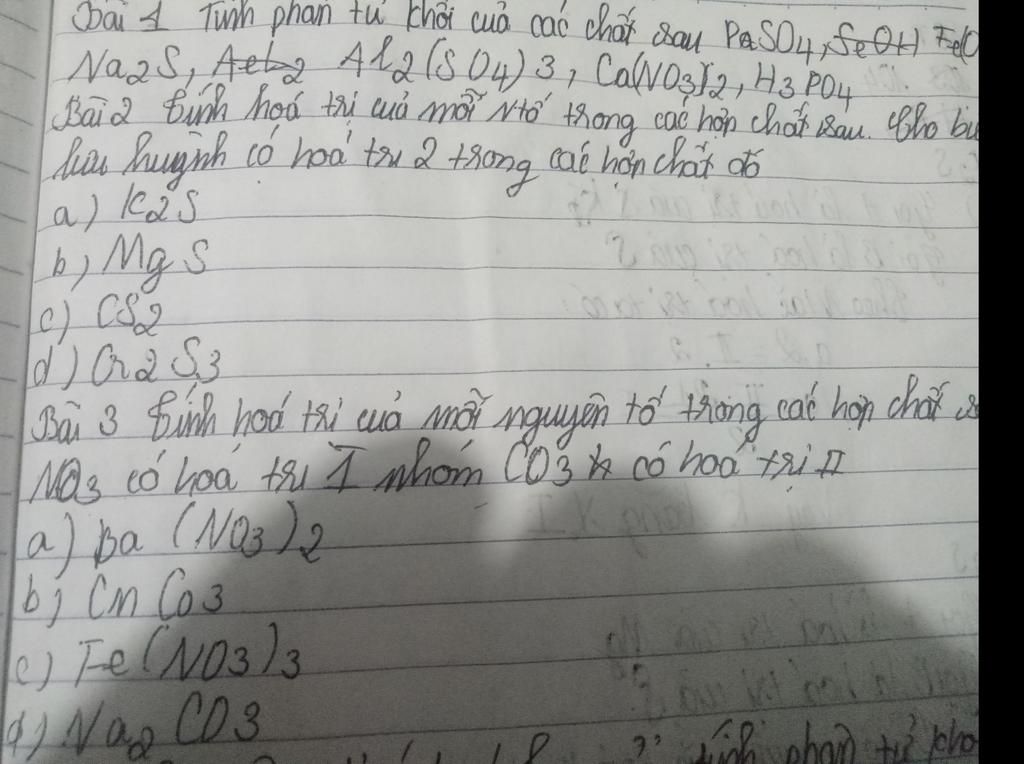 Bài 1 Tính phân tử khối cuả các chất sau BaSO4, FeOH Fe(O
Na2S, AeL2 Al2(SO4)3, Ca(NO3)2, H3PO4
Bài 2 tính hoá trị cuả mỗi ntố trong các hợp chất sau. Cho bi
lưu huỳnh có hoá trị 2 trong các hợp chất đó
a) K2S
b) MgS
c) CS2
d) Cr2S3
Bài 3 tính hoá trị cuả mỗi nguyên tố trong các hợp chất s
NO3 có hoá trị I nhóm CO3 có hoá trị II
a) Ba (NO3)2
b) Cn Co3
c) Fe(NO3)3
d) Na2 CO3
tính phân tử khố